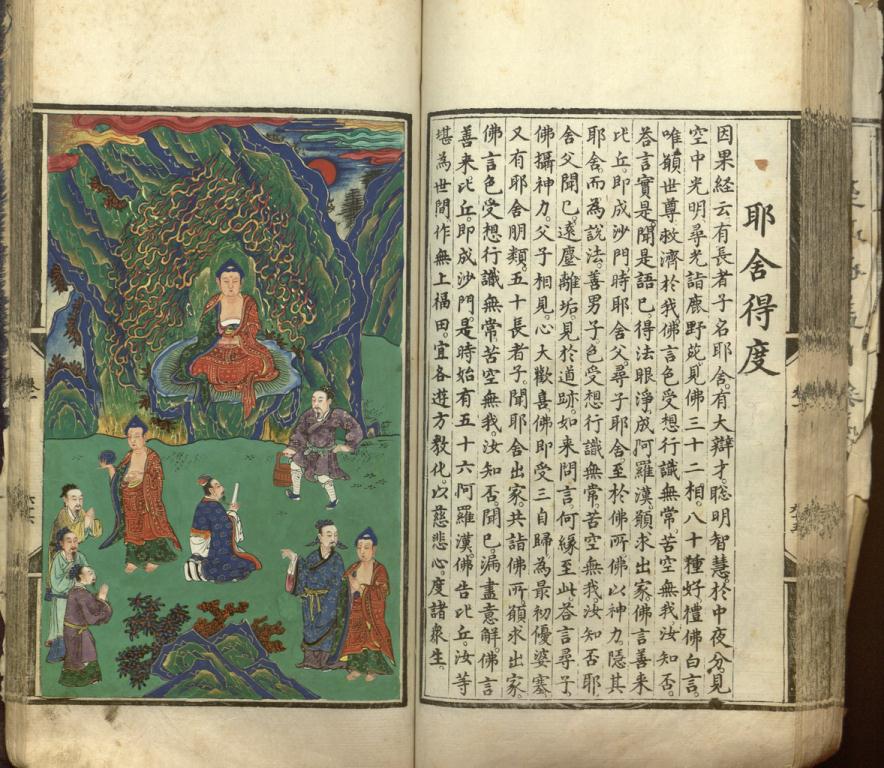 耶舍得度
因果経云。有長者子名耶舍。有大辯才。聰明智慧。於中夜分。見
空中光明。尋光詣鹿野苑。見佛三十二相。八十種好。禮佛白言。
唯願世尊救濟於我。佛言色受想行識無常。苦空無我。汝知否。
荅言實是。聞是語已。得法眼淨。成阿羅漢。願求出家。佛言善来
比丘。即成沙門。時耶舍父。尋子耶舍。至於佛所。佛以神力。隱其
耶舍。而為說法。善男子色受想行識無常。苦空無我。汝知否。耶
舍父聞已。遠塵離垢。見於道跡。如来問言。何緣至此。荅言尋子。
佛攝神力。父子相見。心大歡喜。佛即受三自歸。為最初優婆塞。
又有耶舍朋類。五十長者子。聞耶舍出家。共詣佛所。願求出家。
佛言色受想行識無常。苦空無我。汝知否。聞已。漏盡意解。佛言
善来比丘。即成沙門。是時始有五十六阿羅漢。佛告比丘。汝等
堪為世間作無上福田。宜各遊方教化。以慈悲心。度諸衆生。